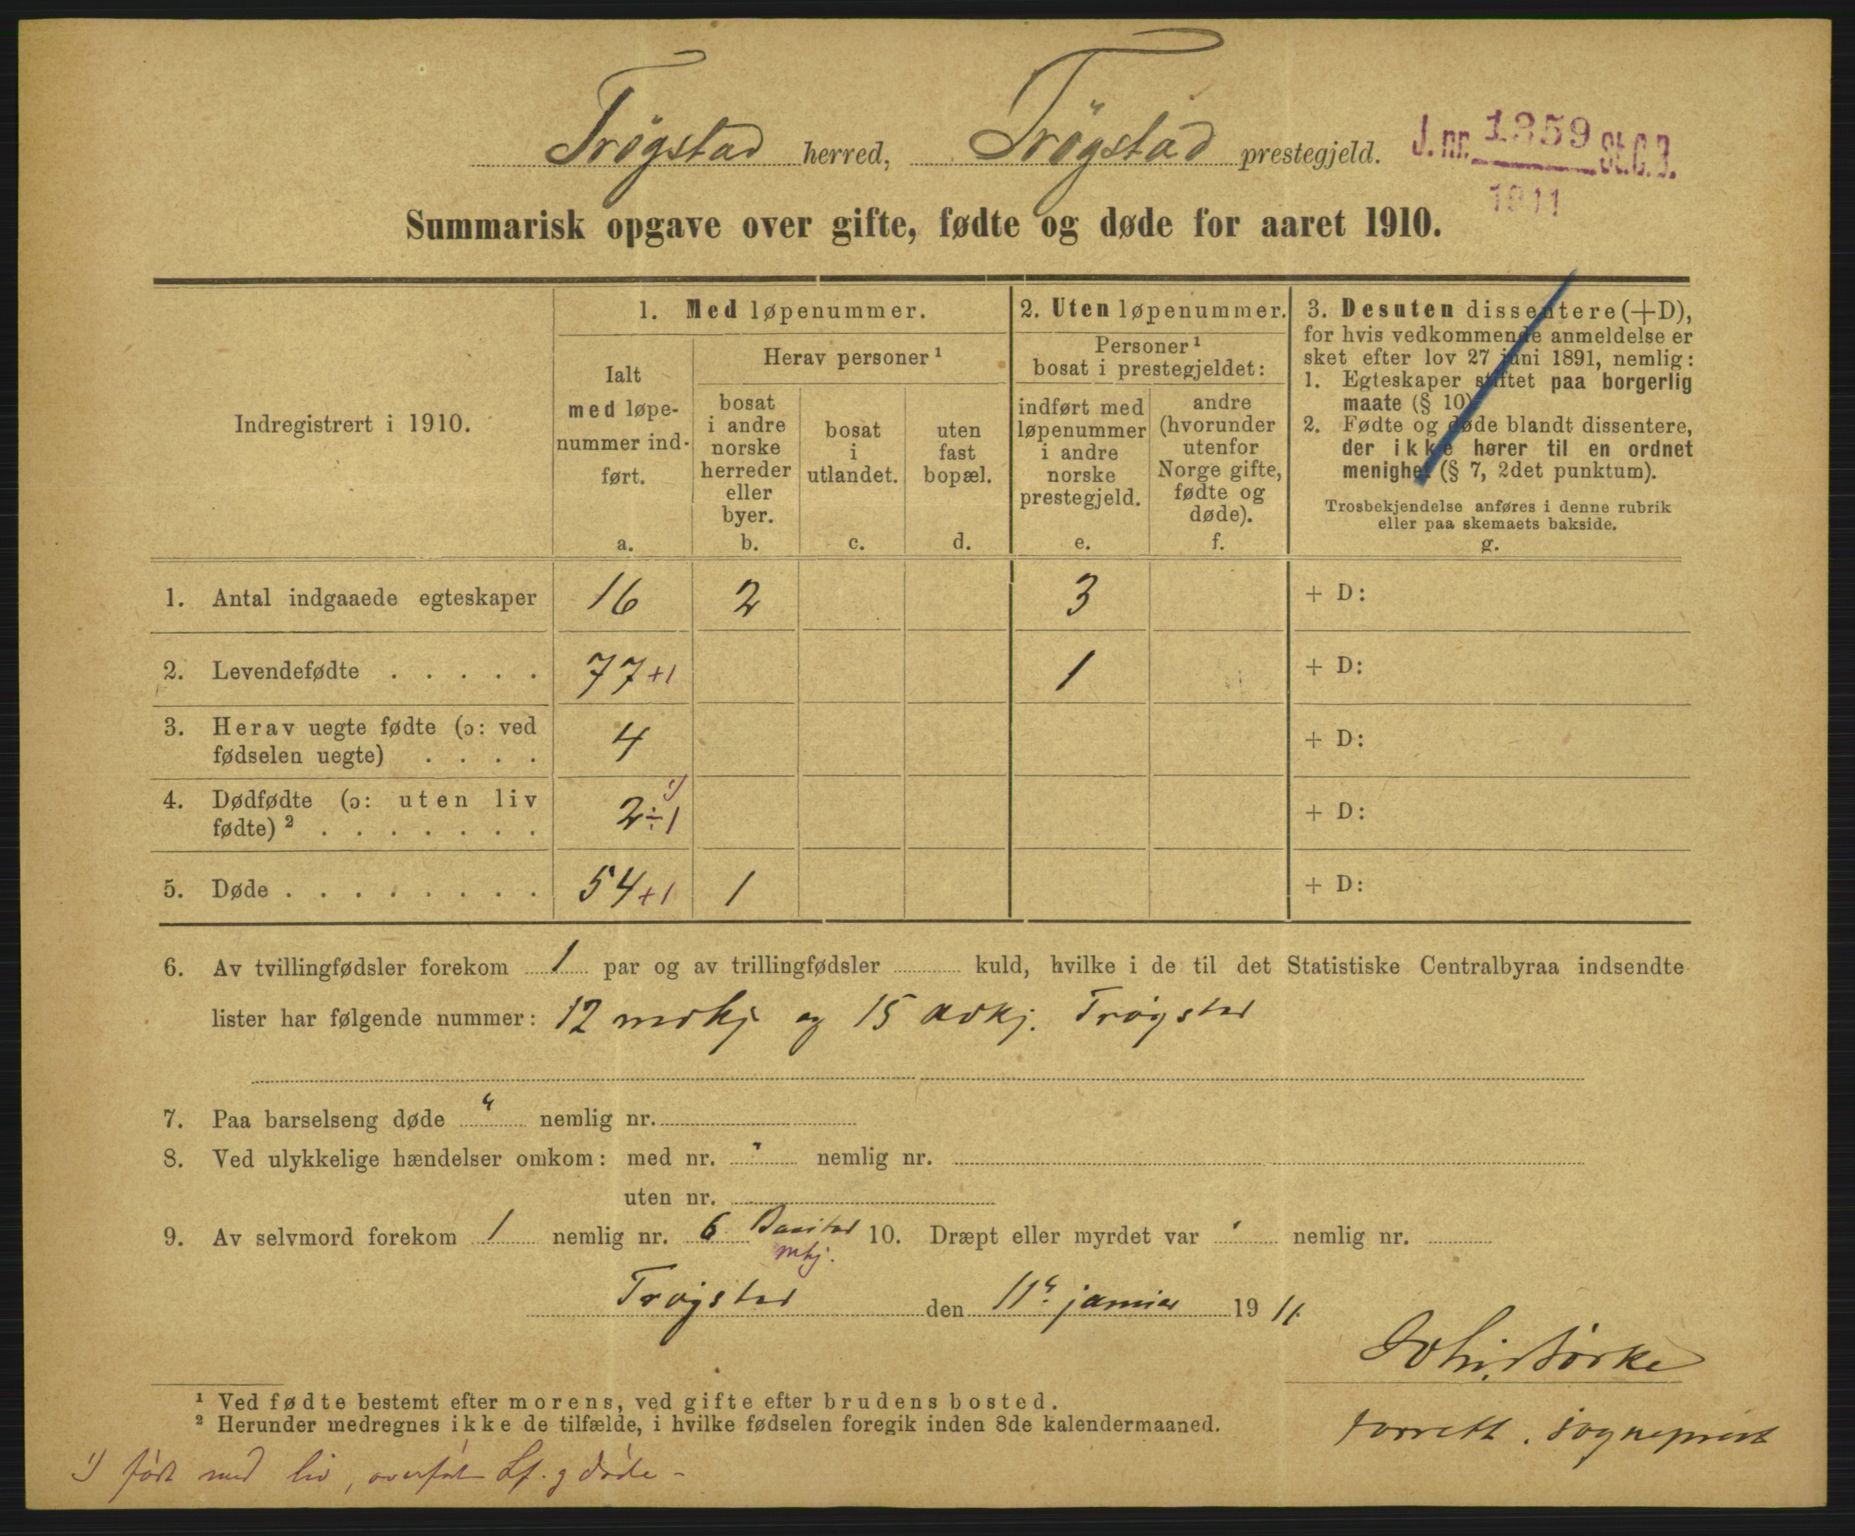 Trøgstad herred, Trøgstad prestegjeld.
J. nr. 1359 St.C.B.
1911
Summarisk opgave over gifte, fødte og døde for aaret 1910.
Indregistrert i 1910.
1. Med løpenummer.
Ialt
med løpe-
nummer ind-
ført.
a.
Herav personer ¹
bosat
i andre
norske
herreder
eller
byer.
b.
bosat
i
utlandet.
c.
uten
fast
bopæl.
d.
2. Uten løpenummer.
Personer ¹
bosat i prestegjeldet:
indført med
løpenummer
i andre
norske
prestegjeld.
e.
andre
(hvorunder
utenfor
Norge gifte,
fødte og
døde).
f.
3. Desuten dissentere (+D),
for hvis vedkommende anmeldelse er
sket efter lov 27 juni 1891, nemlig:
1. Egteskaper stiftet paa borgerlig
maate (§ 10).
2. Fødte og døde blandt dissentere,
der ikke hører til en ordnet
menighet (§ 7, 2det punktum).
Trosbekjendelse anføres i denne rubrik
eller paa skemaets bakside.
g.
1. Antal indgaaede egteskaper 16 2 3 + D:
2. Levendefødte . . . . . 77 +1 1 + D:
3. Herav uegte fødte (ɔ: ved
fødselen uegte) . . . . 4 + D:
4. Dødfødte (ɔ: uten liv
fødte) ² . . . . . . . 2 ÷1 ¹) + D:
5. Døde . . . . . . . . 54 +1 1 + D:
6. Av tvillingfødsler forekom 1 par og av trillingfødsler kuld, hvilke i de til det Statistiske Centralbyraa indsendte
lister har følgende nummer: 12 mdkj og 15 kvkj. Trøgstad
7. Paa barselseng døde " nemlig nr.
8. Ved ulykkelige hændelser omkom: med nr. " nemlig nr.
uten nr.
9. Av selvmord forekom 1 nemlig nr. 6 Baastad 10. Dræpt eller myrdet var " nemlig nr.
mkj.
Trøgstad den 11te januar 1911.
¹ Ved fødte bestemt efter morens, ved gifte efter brudens bosted.
² Herunder medregnes ikke de tilfælde, i hvilke fødselen foregik inden 8de kalendermaaned.
sogneprest
¹) født med liv, overført Lf. og døde –